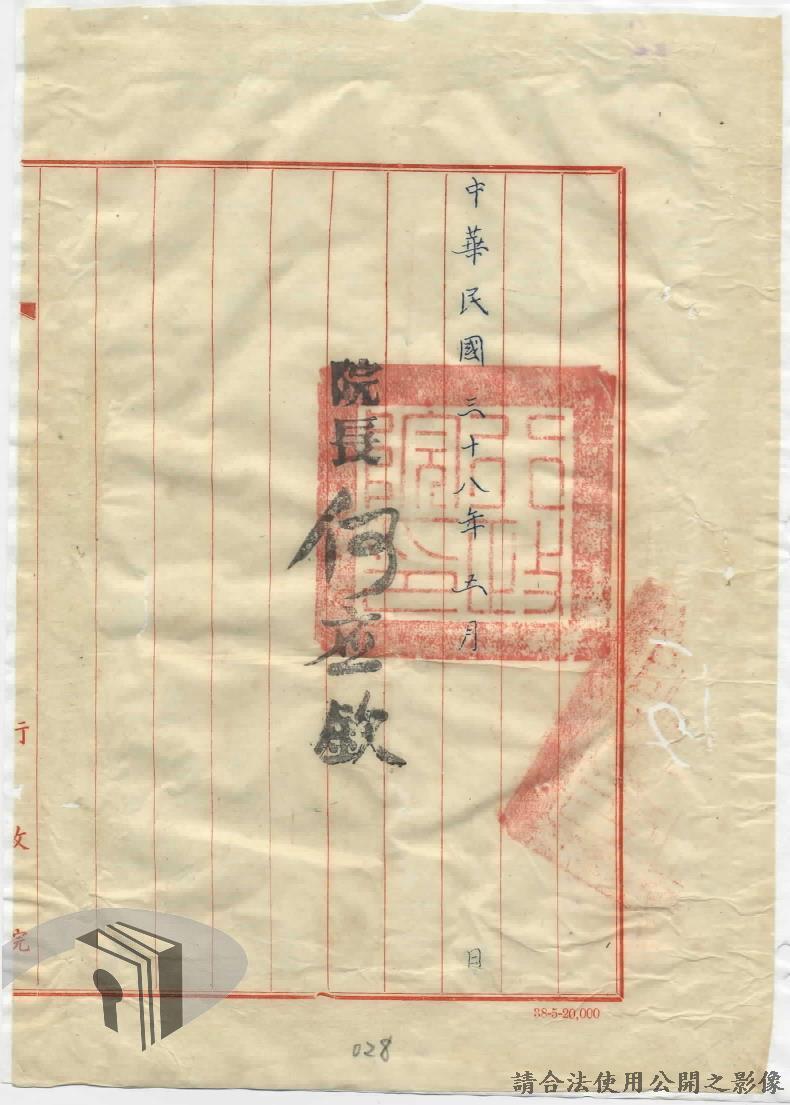 中華民國三十八年五月 日
院長 何應欽
行政院
38-5-20,000
028
請合法使用公開之影像